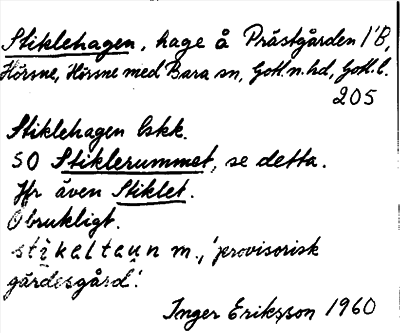 Stiklehagen, hage å Prästgården 1^B,
Hörsne, Hörsne med Bara sn, Gotl. n. hd, Gotl. l.
205
Stiklehagen lskk.
SO Stiklerummet, se detta.
Jfr även Stiklet.
Obrukligt.
stikaltaun m., 'provisorisk
gärdesgård'.
Inger Eriksson 1960